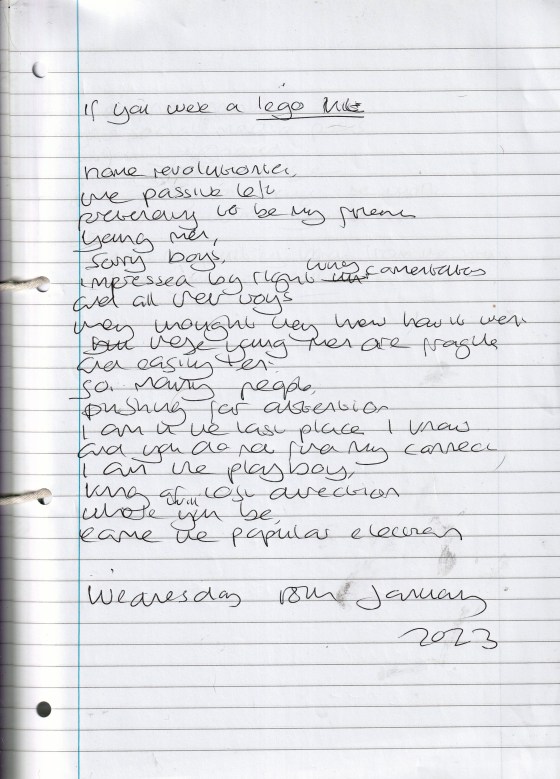 If you were a lego
home revolutionaries,
the passive left
pretending to be my friend
young men,
sorry boys,
impressed by right wing commentators
and all their toys
they thought they knew how it went
but these young men are fragile
and easily
so many people,
pushing for attention
I am in the last place I know
and you do not find my connect
I am the playboy,
king of lost direction
whose will be,
came the popular election
Wednesday 18th January
2023